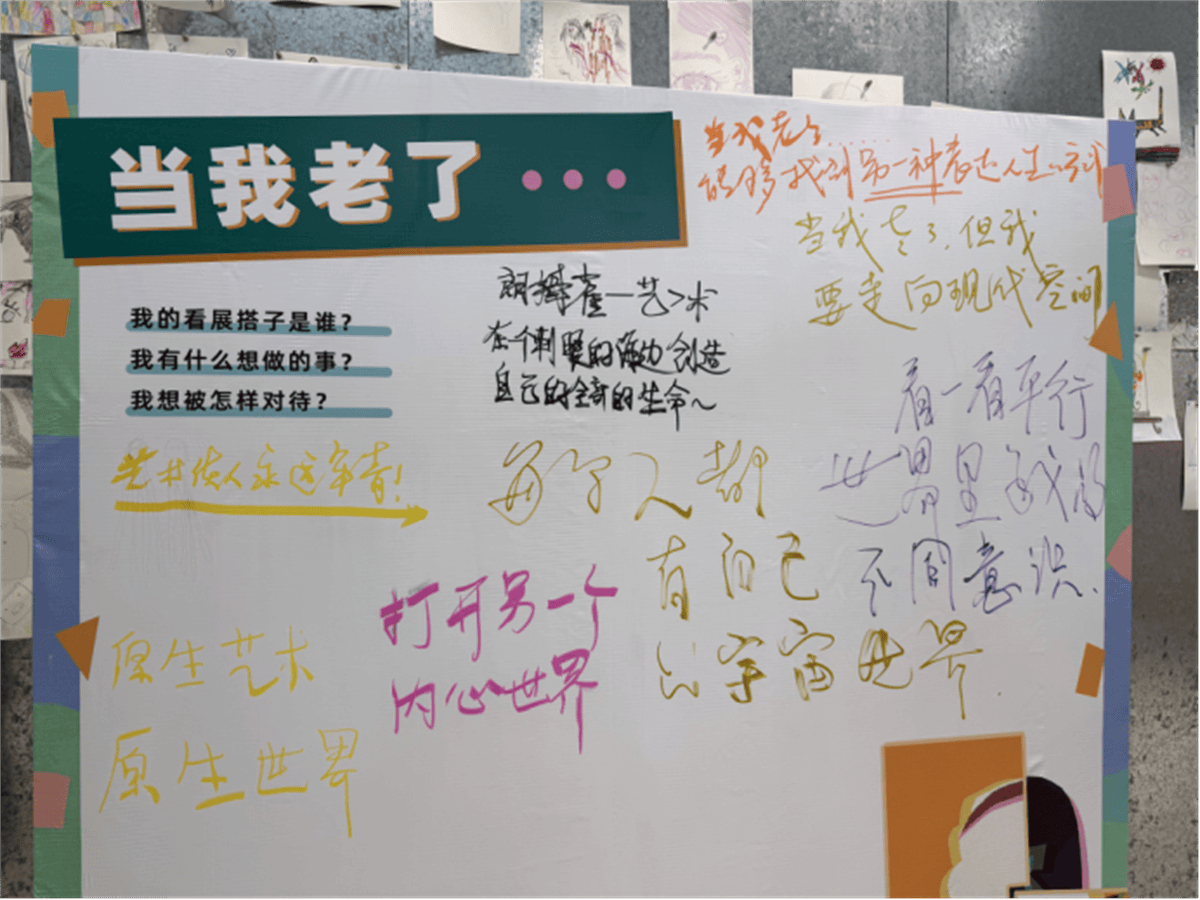 当我老了•••
我的看展搭子是谁？
我有什么想做的事？
我想被怎样对待？
当我老了……
能够找到另一种表达人生的方式
当我老了，但我
要走向现代空间
艺术
创造
自己的全新的生命～
看一看平行
世界里
不同意识.
艺术使人永远年青！
每个人都
有自己
的宇宙世界.
打开另一个
内心世界
原生艺术
原生世界